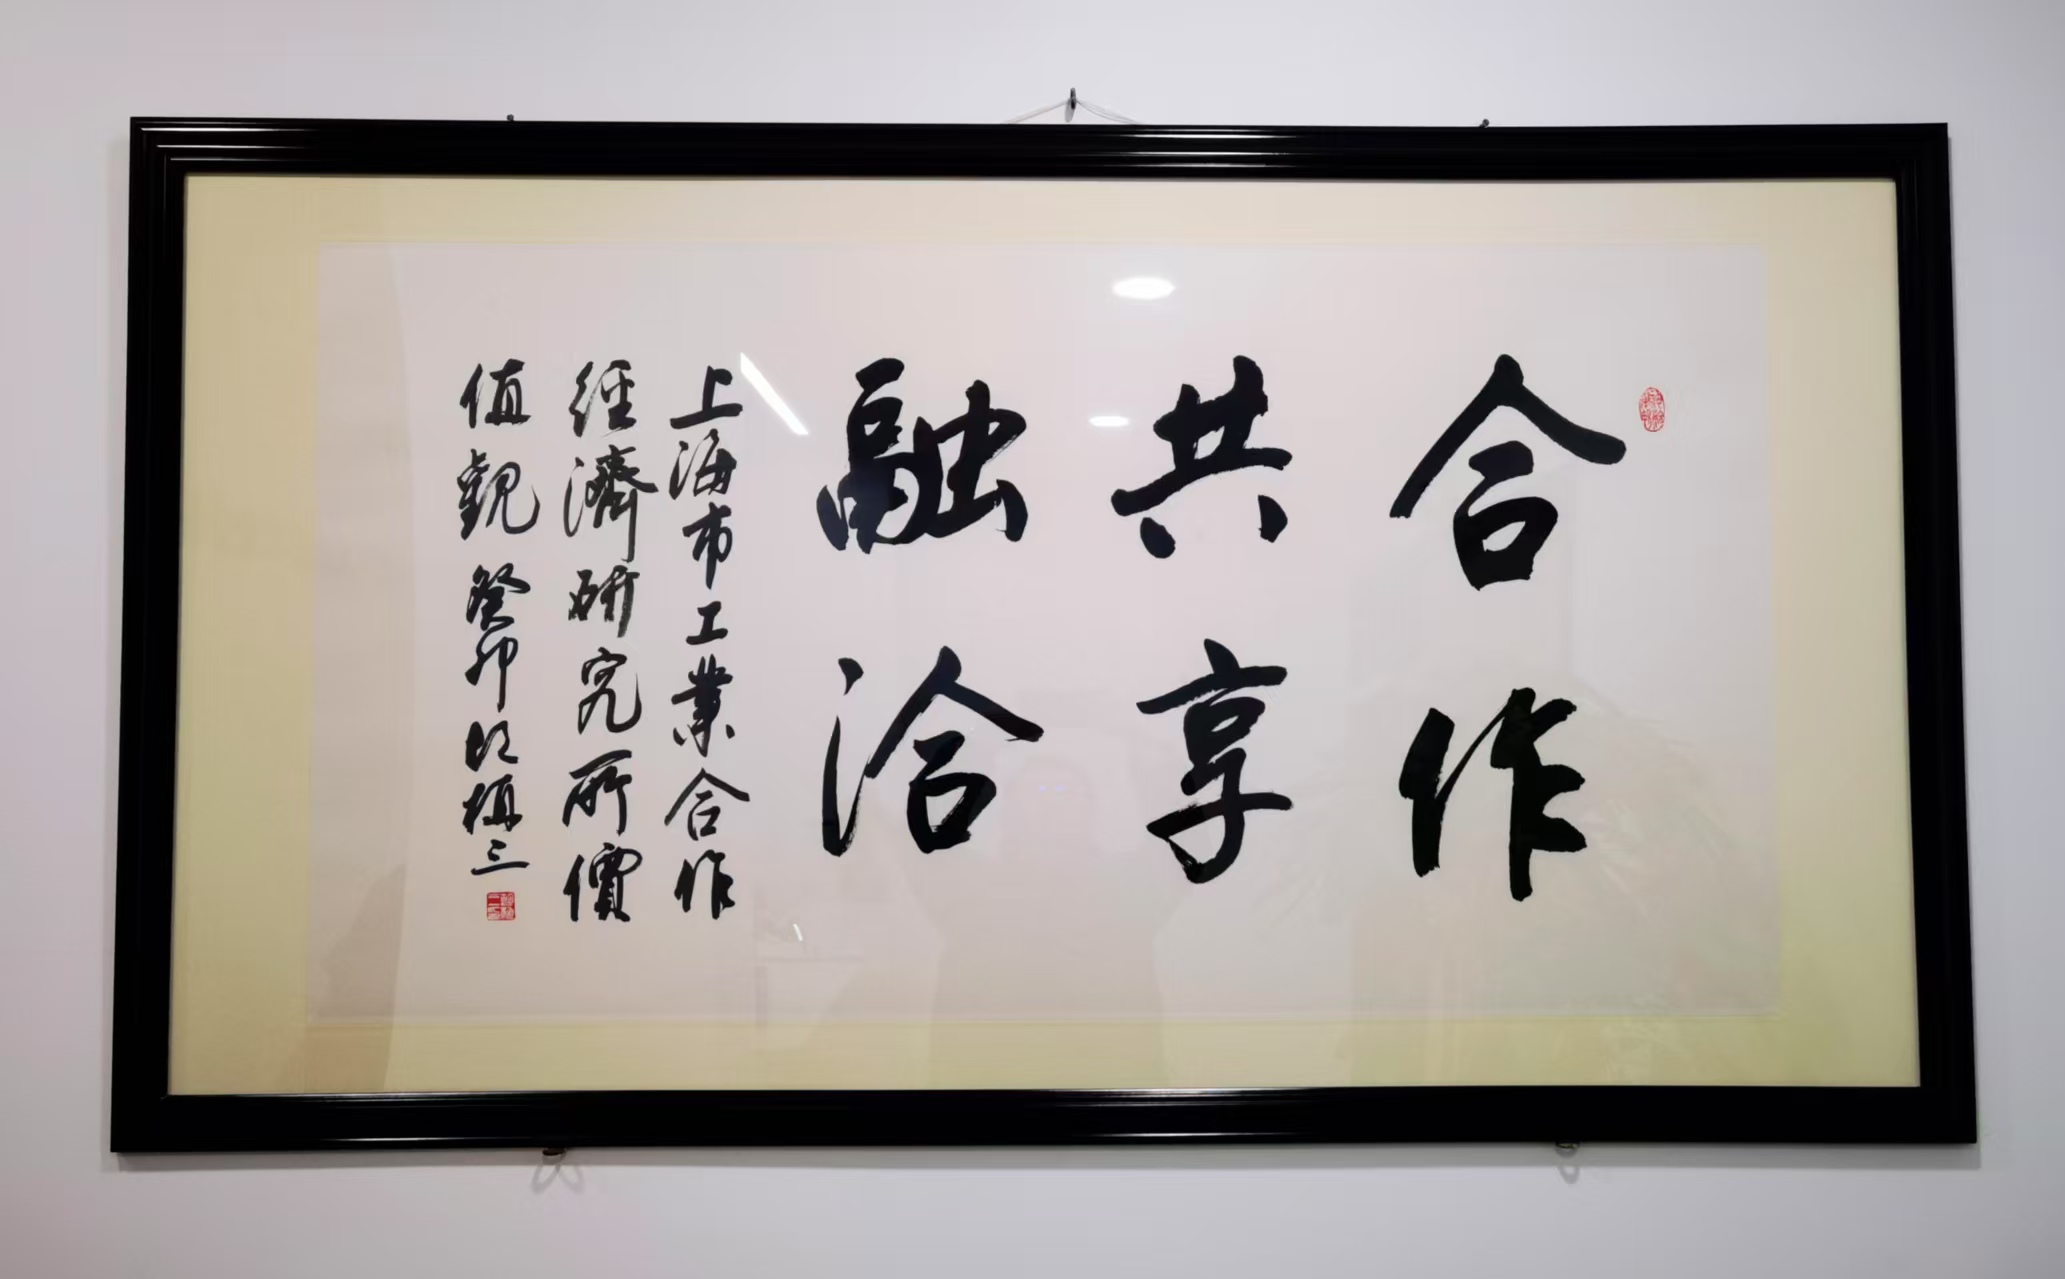 合作
共享
融洽
上海市工業合作
經濟研究所價
值觀 癸卯 胡植三